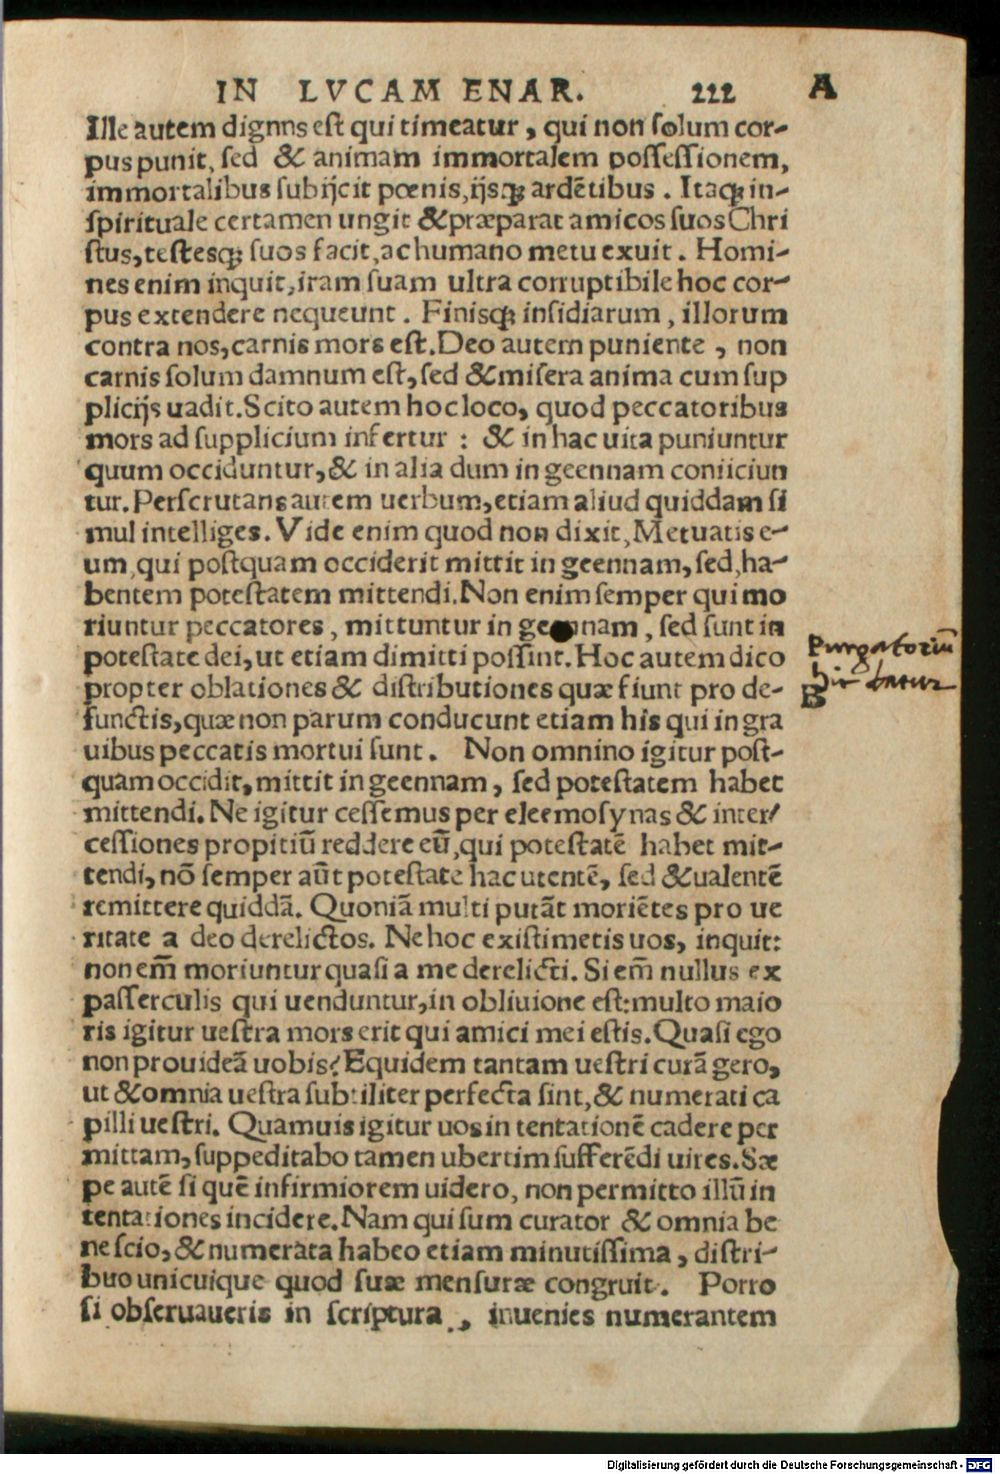 IN LVCAM ENAR. 222 A
Ille autem dignns est qui timeatur, qui non solum cor-
pus punit, sed & animam immortalem possessionem,
immortalibus subijcit pœnis, ijsq; ardētibus. Itaq; in-
spirituale certamen ungit & præparat amicos suos Chri
stus, testesq; suos facit, ac humano metu exuit. Homi-
nes enim inquit, iram suam ultra corruptibile hoc cor-
pus extendere nequeunt. Finisq; insidiarum, illorum
contra nos, carnis mors est. Deo autem puniente, non
carnis solum damnum est, sed & misera anima cum sup
plicijs uadit. Scito autem hoc loco, quod peccatoribus
mors ad supplicium infertur: & in hac uita puniuntur
quum occiduntur, & in alia dum in geennam coniiciun
tur. Perscrutans autem uerbum, etiam aliud quiddam si
mul intelliges. Vide enim quod non dixit, Metuatis e-
um, qui postquam occiderit mittit in geennam, sed, ha-
bentem potestatem mittendi. Non enim semper qui mo
riuntur peccatores, mittuntur in geennam, sed sunt in
potestate dei, ut etiam dimitti possint. Hoc autem dico
propter oblationes & distributiones quæ fiunt pro de-
functis, quæ non parum conducunt etiam his qui in gra
uibus peccatis mortui sunt. Non omnino igitur post-
quam occidit, mittit in geennam, sed potestatem habet
mittendi. Ne igitur cessemus per eleemosynas & inter/
cessiones propitiū reddere eū, qui potestatē habet mit-
tendi, nō semper aūt potestate hac utentē, sed & ualentē
remittere quiddā. Quoniā multi putāt moriētes pro ue
ritate a deo derelictos. Ne hoc existimetis uos, inquit:
non em̄ moriuntur quasi a me derelicti. Si em̄ nullus ex
passerculis qui uenduntur, in obliuione est: multo maio
ris igitur uestra mors erit qui amici mei estis. Quasi ego
non prouideā uobis? Equidem tantam uestri curā gero,
ut & omnia uestra subtiliter perfecta sint, & numerati ca
pilli uestri. Quamuis igitur uos in tentationē cadere per
mittam, suppeditabo tamen ubertim sufferēdi uires. Sæ
pe autē si quē infirmiorem uidero, non permitto illū in
tentationes incidere. Nam qui sum curator & omnia be
ne scio, & numerata habeo etiam minutissima, distri-
buo unicuique quod suæ mensuræ congruit. Porro
si obseruaueris in scriptura, inuenies numerantem
Purgatoriū
B
Digitalisierung gefördert durch die Deutsche Forschungsgemeinschaft - DFG